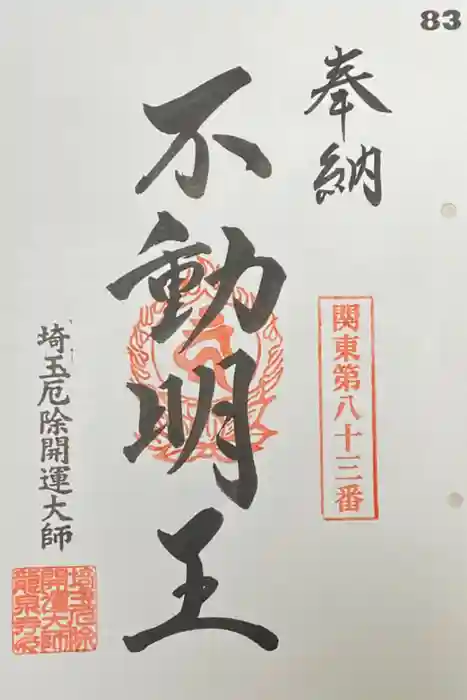 83
奉納
関東第八十三番
不動明王
埼玉厄除開運大師
埼玉厄除
開運大師
龍泉寺印